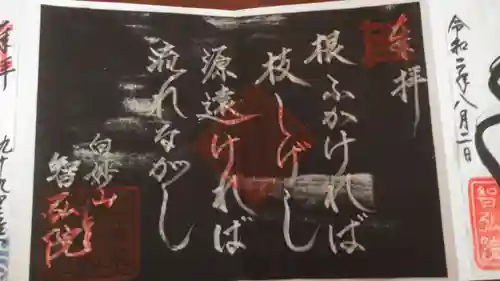 令和二年八月二日
奉拝
根ふかければ
枝しげし
源遠ければ
流れながし
白砂山
智弘院
智弘院